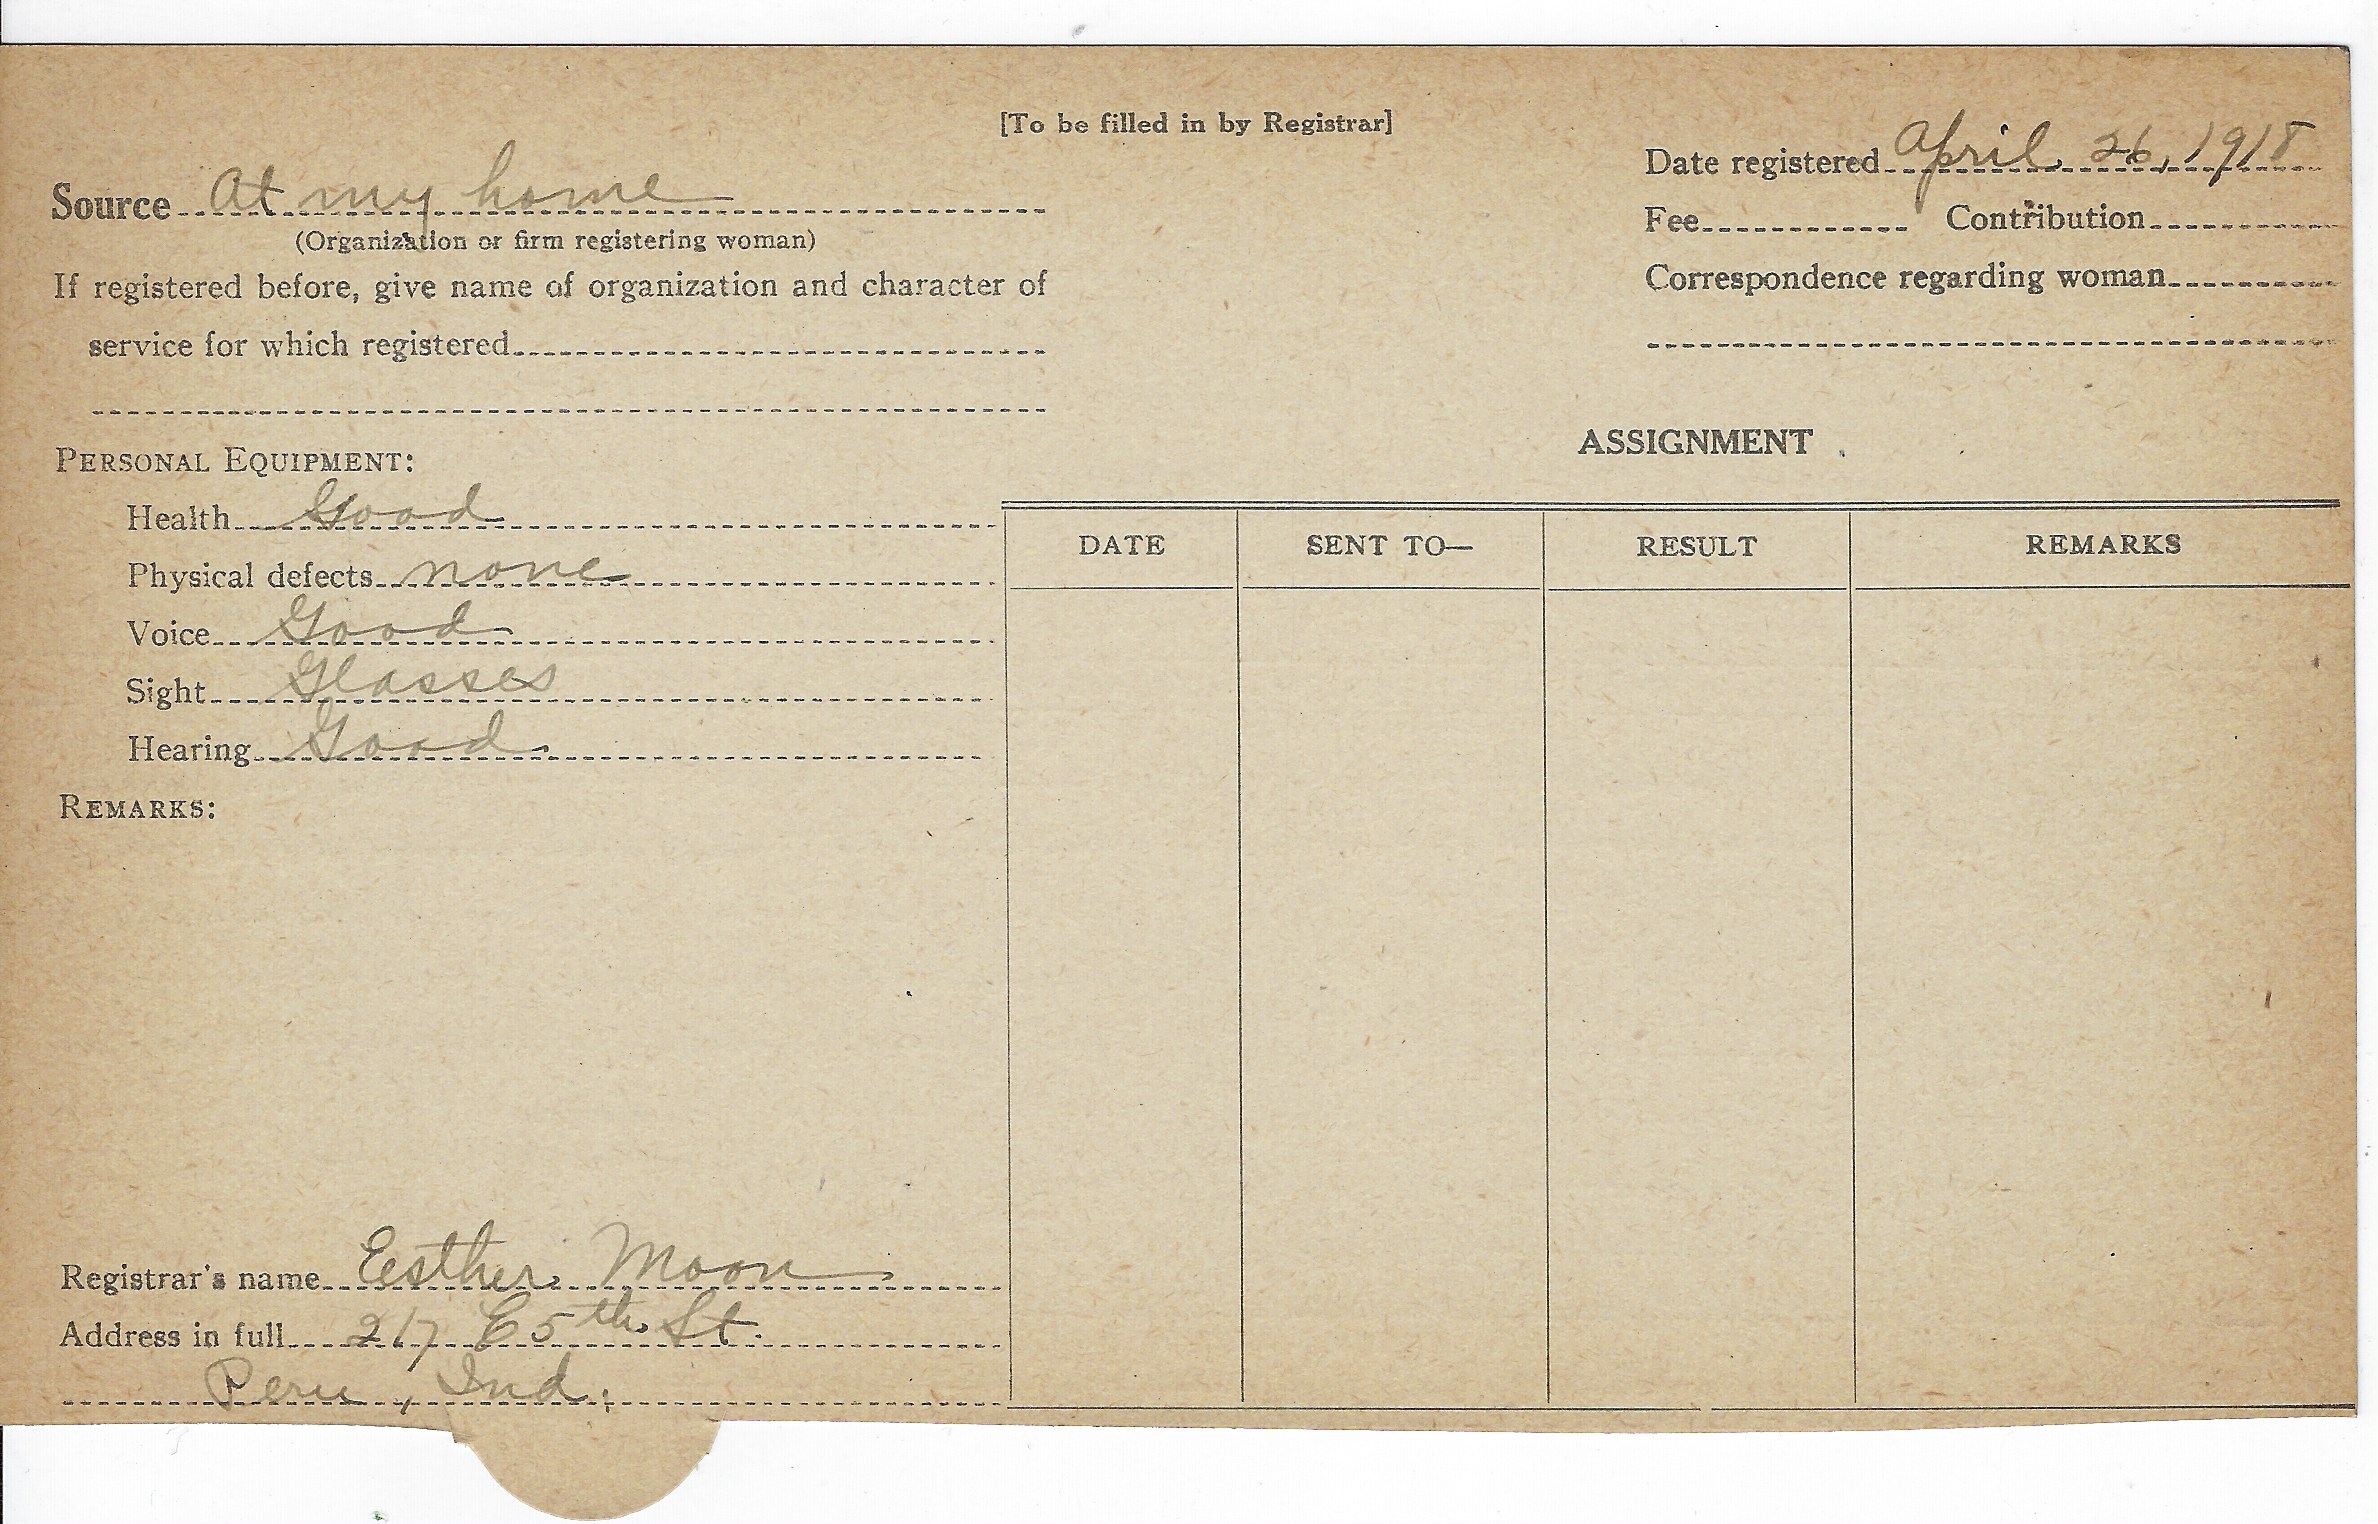 [To be filled in by Registrar]
Source At my home
(Organization or firm registering woman)
If registered before, give name of organization and character of
service for which registered
Date registered April 26, 1918
Fee Contribution
Correspondence regarding woman
PERSONAL EQUIPMENT:
Health Good
Physical defects none
Voice Good
Sight Glasses
Hearing Good
REMARKS:
Registrar's name Eesther Moon
Address in full 217 E 5th St.
Peru, Ind.
ASSIGNMENT
DATE SENT TO— RESULT REMARKS